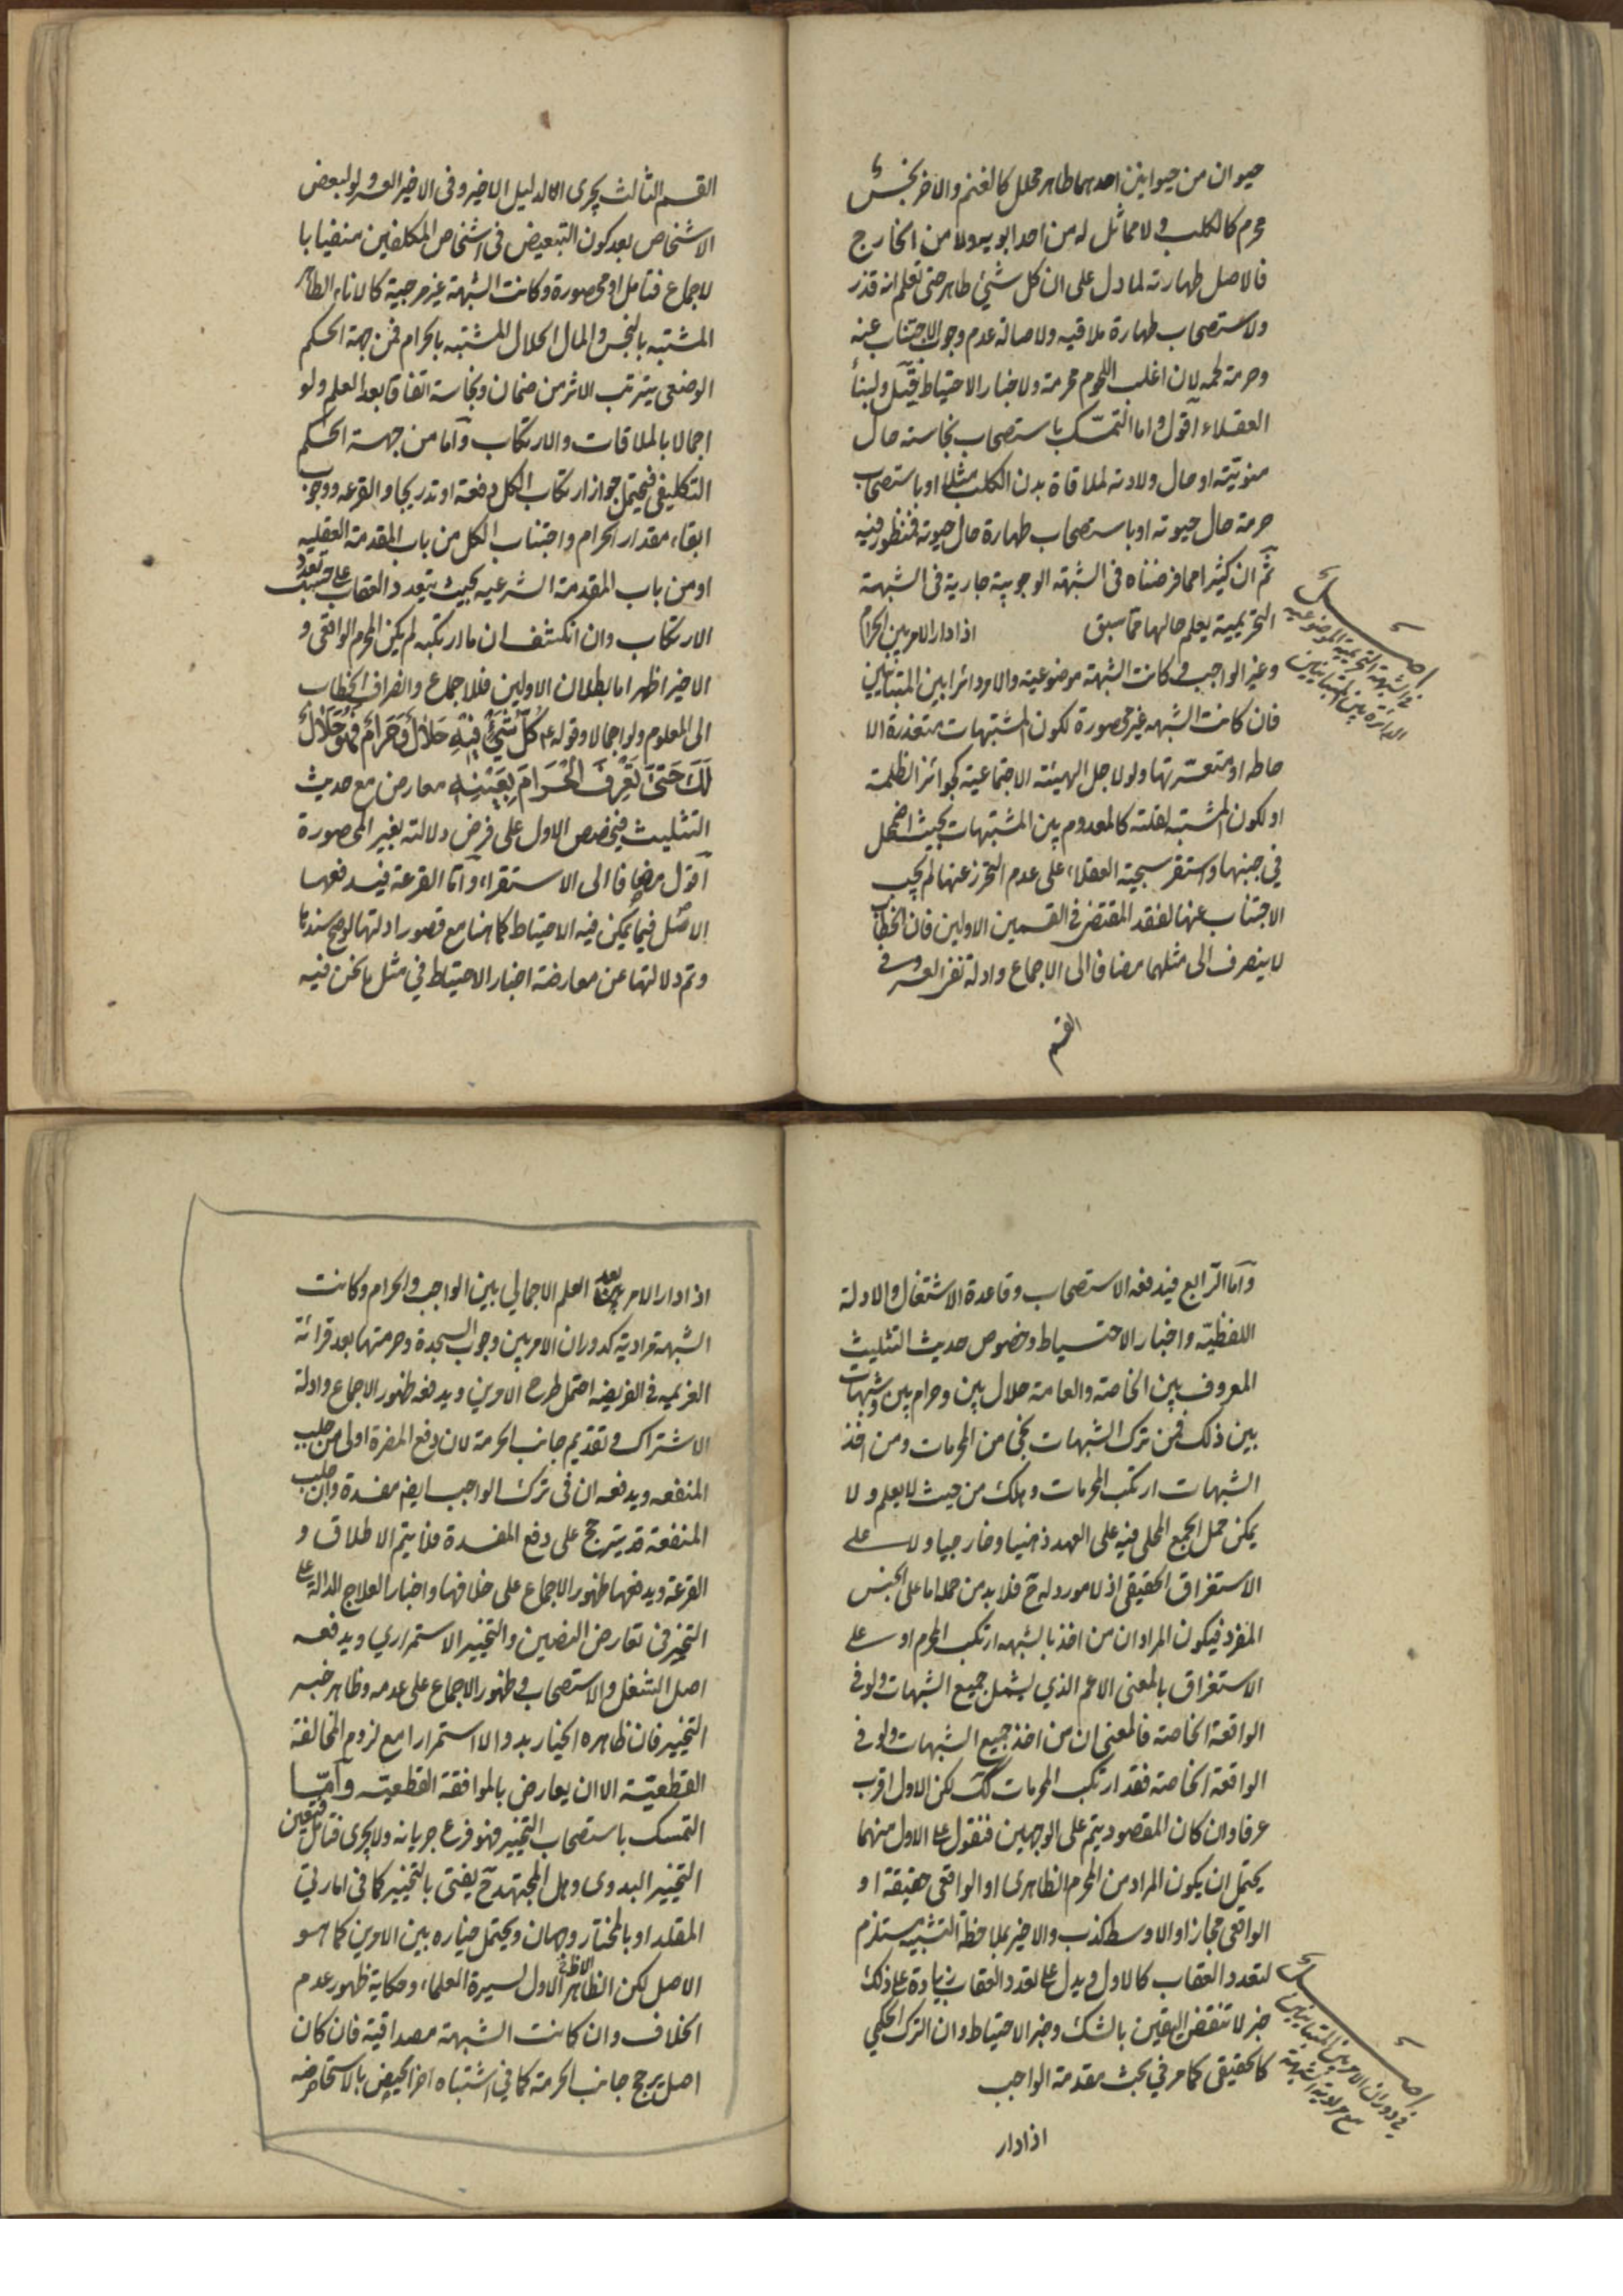 حيوان من حيوانين احدهما طاهر محلل كالغنم والاخر نجس
محرم كالكلب ولا مماثل له من احد ابويه ولا من الخارج
فالاصل طهارته لما دل على ان كل شيئ طاهر حتى تعلم انه قذر
ولاستصحاب طهارة ملاقيه ولاصالة عدم وجوب الاجتناب عنه
وحرمة لحمه لان اغلب اللحوم محرمة ولاخبار الاحتياط ولبناء
العقلاء اقول واما التمسّك باستصحاب نجاسته حال
منويّته او حال ولادته لملاقاة بدن الكلب مثلا او باستصحاب
حرمة حال حيوته او باستصحاب طهارة حال حيوته فمنظور فيه
ثم ان كثيرا مما فرضناه فى الشبهة الوجوبية جارية فى الشبهة
التحريمية يعلم حالها مما سبق اذا دار الامر بين الحرام
وغير الواجب وكانت الشبهة موضوعية والامر دائرا بين المتباينين
فان كانت الشبهه غير محصورة لكون المشتبهات متعذرة الا
حاطه او متعسّرتها ولو لاجل الهيئته الاجتماعية كجوائز الظلمة
او لكون المشتبه لقلته كالمعدوم بين المشتبهات بحيث اضمحل
في جنبها واستقر سجية العقلاء على عدم التحرز عنها لم يجب
الاجتناب عنها لفقد المقتضى فى القسمين الاولين فان الخطاب
لا ينصرف الى مثلهما مضافا الى الاجماع وادلة نفى العسر وفى
القسم
اصل
فى الشبهة التحريمية الموضوعية
الدائرة بين المتباينين
القسم الثالث يجرى الا الدليل الاخير وفى الاخير العسر ولو لبعض
الاشخاص بعد كون التبعيض فى اشخاص المكلفين منفيا با
لاجماع فتامل او محصورة وكانت الشبهة غير مزجية كالاناء الطاهر
المشتبه بالنجس والمال الحلال المشتبه بالحرام فمن جهة الحكم
الوضعى يترتب الاثر من ضمان ونجاسة اتفاقا بعد العلم ولو
اجمالا بالملاقات والارتكاب وامّا من جهة الحكم
التكليفى فيحتمل جواز ارتكاب الكل دفعة او تدريجا والقرعه ووجوب
ابقاء مقدار الحرام واجتناب الكل من باب المقدمة العقليه
او من باب المقدمة الشرعيه بحيث يتعدد العقاب على حسب تعدد
الارتكاب وان انكشف ان ما ارتكبه لم يكن المحرم الواقعى و
الاخير اظهر اما بطلان الاولين فللاجماع وانصراف الخطاب
الى المعلوم ولو اجمالا وقوله ع كُلُّ شَيْءٍ فِيْهِ حَلَالٌ وَحَرَامٌ فَهُوَ حَلَالٌ
لَكَ حَتّٰى تَعْرِفَ الْحَرَامَ بِعَيْنِهِ معارض مع حديث
التثليث فيخصص الاول على فرض دلالته بغير المحصورة
اقول مضافا الى الاستقراء وامّا القرعة فيدفعها
الاصل فيما يمكن فيه الاحتياط كما هنا مع قصور ادلتها لو صح سندها
وتم دلالتها عن معارضة اخبار الاحتياط في مثل ما نحن فيه
وامّا الرّابع فيدفعه الاستصحاب وقاعدة الاشتغال والادلة
اللفظيّه واخبار الاحتياط وخصوص حديث التثليث
المعروف بين الخاصة والعامة حلال بين وحرام بين وشبهات
بين ذلك فمن ترك الشبهات نجى من المحرمات ومن اخذ
الشبهات ارتكب المحرمات وهلك من حيث لا يعلم ولا
يمكن حمل الجمع المحلى فيه على العهد ذهنيا وخارجيا ولا على
الاستغراق الحقيقى اذ لا مورد له ح فلا بد من حمله اما على الجنس
المفرد فيكون المراد ان من اخذ بالشبهه ارتكب المحرم او على
الاستغراق بالمعنى الاعم الذي يشمل جميع الشبهات ولو فى
الواقعة الخاصة فالمعنى ان من اخذ جميع الشبهات ولو فى
الواقعة الخاصة فقد ارتكب المحرمات كك لكن الاول اقرب
عرفا وان كان المقصود يتم على الوجهين فنقول على الاول منهما
يحتمل ان يكون المراد من المحرم الظاهرى او الواقعى حقيقة او
الواقعى مجازا والاوسط كذب والاخير بملاحظة التشبيه مستلزم
لتعدد العقاب كالاول ويدل على تعدد العقاب زيادة على ذلك
خبر لا تنقض اليقين بالشك وخبر الاحتياط وان الترك الحكمي
كالحقيقى كما مر في بحث مقدمة الواجب
اذا دار
اصل
فى دوران الامر بين المتباينين
مع مرادية الشبهة
اذا دار الامر بعد العلم الاجمالي بين الواجب والحرام وكانت
الشبهة مرادية كدوران الامر بين وجوب السجدة وحرمتها بعد قرائة
العزيمه فى الفريضه احتمل طرح الامرين ويدفعه ظهور الاجماع وادلة
الاشتراك وتقديم جانب الحرمة لان دفع المضرة اولى من جلب
المنفعه ويدفعه ان فى ترك الواجب ايضا مفسدة وان جلب
المنفعة قد يترجح على دفع المفسدة فلا يتم الاطلاق و
القرعة ويدفعها ظهور الاجماع على خلافها واخبار العلاج الدالة على
التخيير فى تعارض النصين والتخيير الاستمراري ويدفعه
اصل الشغل والاستصحاب وظهور الاجماع على عدمه وظاهر خبر
التخيير فان ظاهره الخيار بدوا لا استمرارا مع لزوم المخالفة
القطعيّة الا ان يعارض بالموافقة القطعيّه وامّا
التمسك باستصحاب التخيير فهو فرع جريانه ولا يجرى فتامل فتعين
التخيير البدوى وهل المجتهد ح يفتى بالتخيير كما فى امارتي
المقلد او بالمختار وجهان ويحتمل خياره بين الامرين كما هو
الاصل لكن الظاهر الاول لسيرة العلماء وحكاية ظهور عدم
الخلاف وان كانت الشبهة مصداقية فان كان
اصل يرجح جانب الحرمة كما في اشتباه اخر الحيض بالاستحاضه